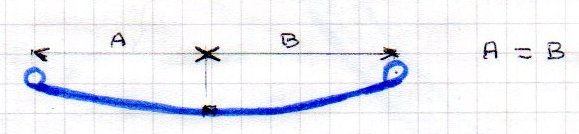 A B A = B